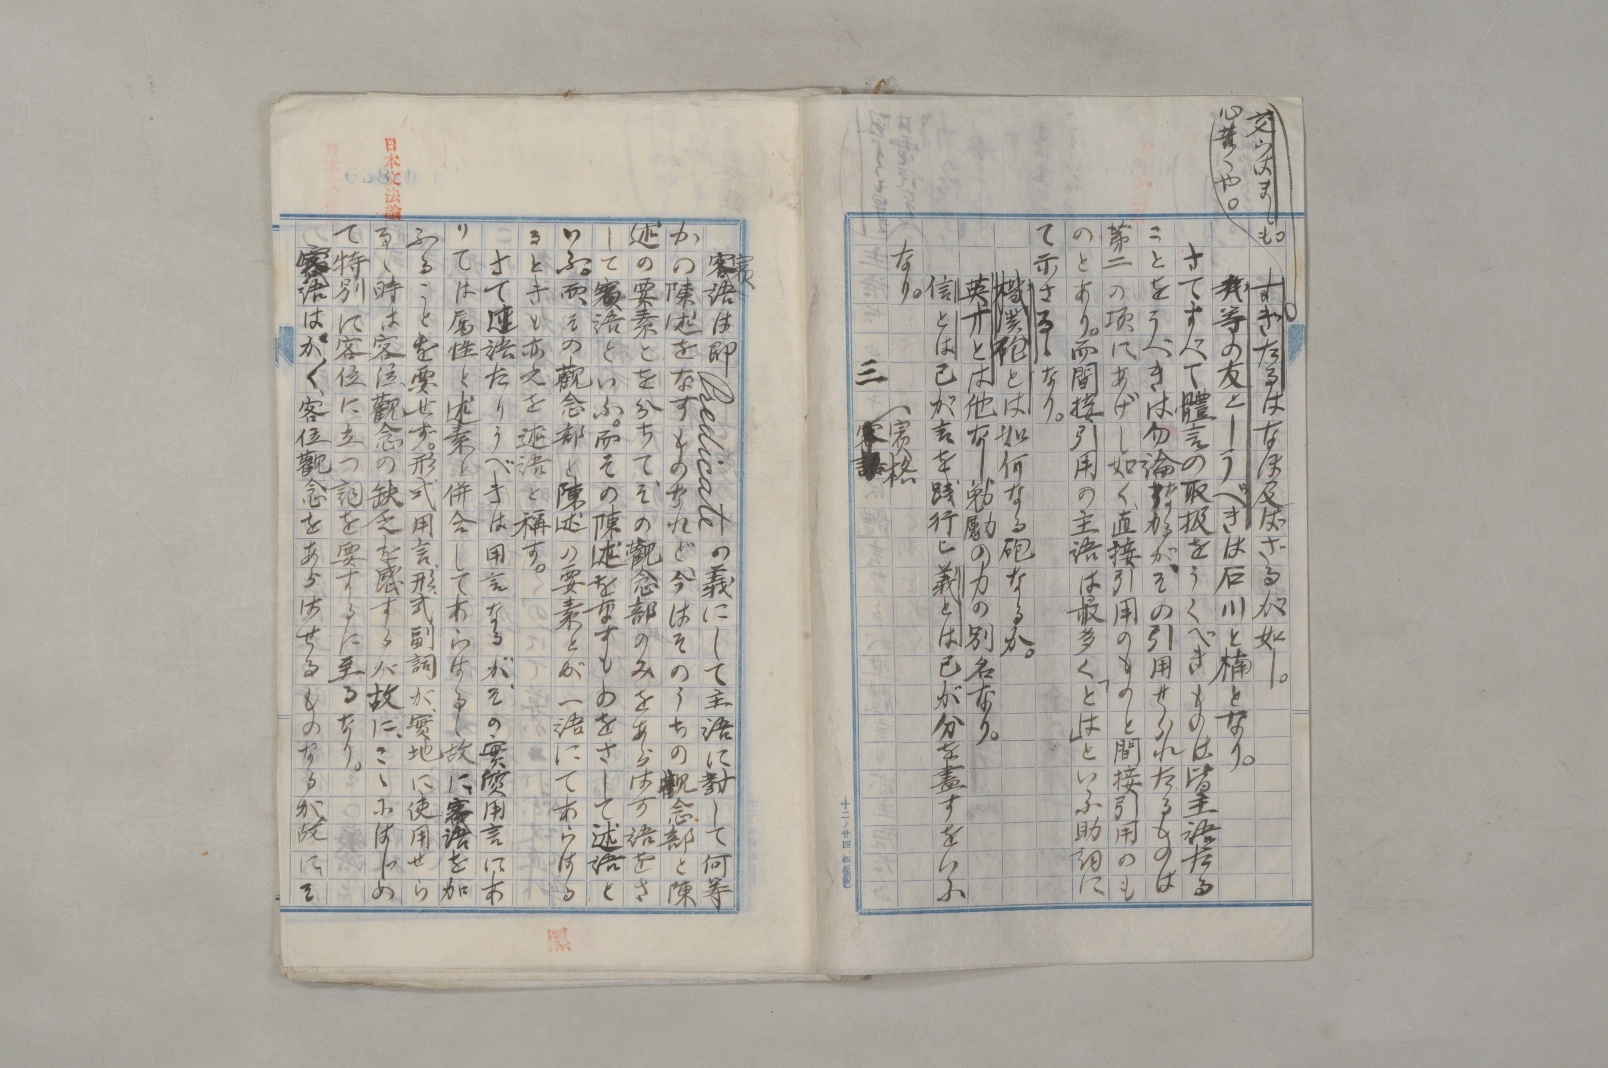 交らはましも。
すぎたるはなほ及ばざるが如し。
我等の友としうべきは石川と楠となり。
さてすべて體言の取扱をうくべきものは皆主語たる
ことをうべきは勿論なるが、その引用せられたるものは
第二の項にあげし如く直接引用のものと間接引用のも
のとあり。而間接引用の主語は最多く「とは」といふ助詞に
て示さるゝなり。
機関砲とは如何なる砲なるか。
英才とは他なし勉勵の力の別名なり。
信とは己が言を践行し義とは己が分を盡すをいふ
なり。
三
賓格
日本文法論
賓語は即Predicateの義にして主語に對して何等
かの陳述をなすものなれど、今はそのうちの觀念部と陳
述の要素とを分ちて、その觀念部のみをあらはす語をさ
して賓語といふ。而その陳述をなすものをさして述語と
いふ。而その觀念部と陳述の要素とが一語にてあらはる
るときも亦之を述語と稱す。
さて述語たりうべきは用言なるが、その實質用言にあ
りては属性と述素と併合してあらはるゝ故に賓語を加
ふることを要せず。形式用言、形式副詞が、實地に使用せら
るゝ時は客位觀念の缺乏を感するが故に、こゝにはじめ
て特別に客位に立つ詞を要するに至るなり。
賓語はかく客位觀念をあらはせるものなるが故にそ
黒